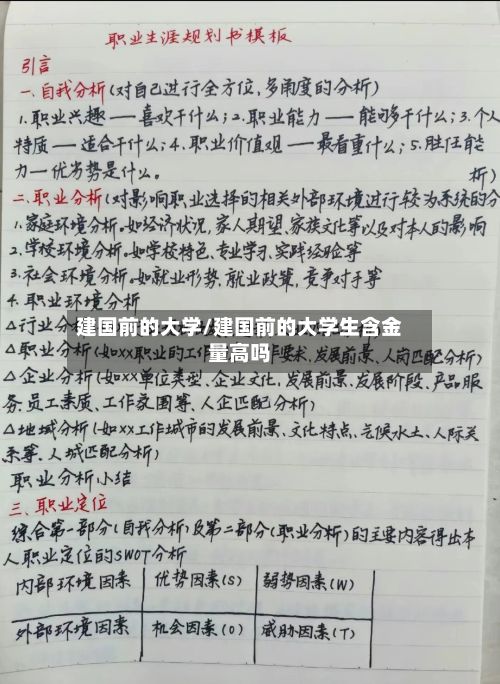 职业生涯规划书模板
引言
一、自我分析(对自己进行全方位,多角度的分析)
1.职业兴趣——喜欢干什么;2.职业能力——能够干什么;3.个人
特质——适合干什么;4.职业价值观——最看重什么;5.胜任能
力—优劣势是什么。
二、职业分析(对影响职业选择的相关外部环境进行较为系统的分析)
1.家庭环境分析。如经济状况,家人期望、家族文化等以及对本人的影响
2.学校环境分析。如学校特色、专业学习、实践经验等
3.社会环境分析。如就业形势、就业政策,竞争对手等
4.职业环境分析
△行业分
建国前的大学/建国前的大学生含金
量高吗
△职业分析(如xx职业的工作 要求、发展前景、人岗匹配分析)
△企业分析(如xx单位类型、企业文化、发展前景、发展阶段、产品服
务、员工素质、工作氛围等、人企匹配分析)
△地域分析(如xx工作城市的发展前景、文化特点、气候水土、人际关
系等、人城匹配分析)
职业分析小结
三、职业定位
综合第一部分(自我分析)及第二部分(职业分析)的主要内容得出本
人职业定位的SWOT分析
内部环境因素 优势因素(S) 弱势因素(W)
外部环境因素 机会因素(O) 威胁因素(T)